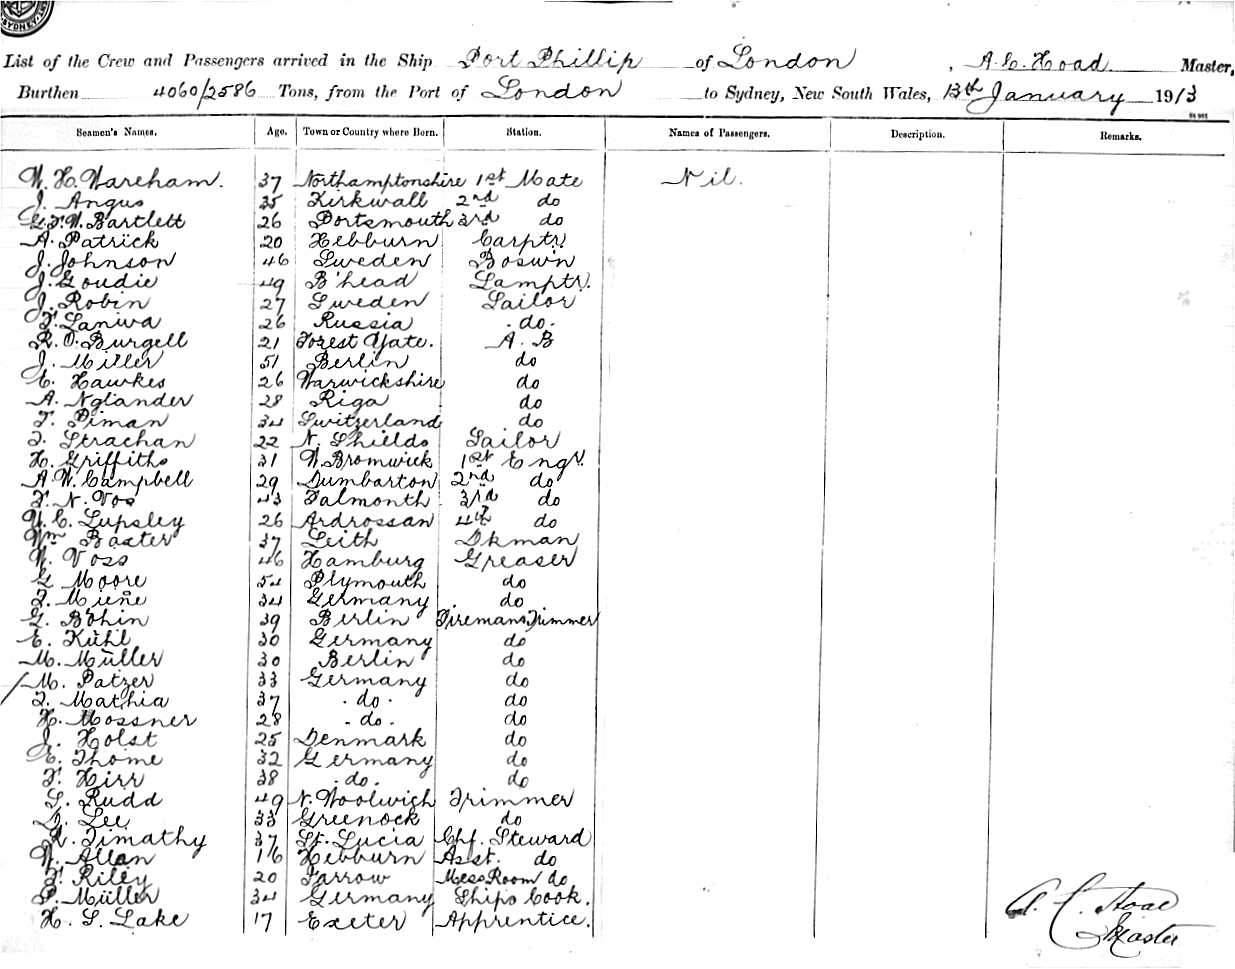 SYDNEY
List of the Crew and Passengers arrived in the Ship Port Phillip of London, A. C. Hoad Master,
Burthen 4060/2586 Tons, from the Port of London to Sydney, New South Wales, 13th January 1913
Seamen's Names. Age. Town or Country where Born. Station. Names of Passengers. Description. Remarks.
W. H. Wareham. 37 Northamptonshire 1st Mate Nil.
J. Angus 35 Kirkwall 2nd do
G. F. W. Bartlett 26 Portsmouth 3rd do
A. Patrick 20 Hebburn Carptr.
J. Johnson 46 Sweden Bosw'n
J. Goudie 49 B'head Lamptr.
J. Robin 27 Sweden Sailor
F. Laniva 26 Russia do.
R. O. Burgell 21 Forest Gate. A. B
J. Miller 51 Berlin do
E. Hawkes 26 Warwickshire do
A. Nglander 28 Riga do
F. Piman 34 Switzerland do
J. Strachan 22 N. Shields Sailor
H. Griffiths 31 W. Bromwick 1st Engr.
A. W. Campbell 29 Dumbarton 2nd do
F. N. Vos 43 Falmonth 3rd do
W. C. Lupsley 26 Ardrossan 4th do
Wm Baxter 37 Leith Dkman
W. Voss 46 Hamburg Greaser
G Moore 54 Plymouth do
J. Miene 34 Germany. do
G. Böhin 39 Berlin Firemans Trimmer
E. Kühl 30 Germany do
M. Müller 30 Berlin do
M. Patzer 33 Germany do
J. Mathia 37 do. do
H. Mossner 28 do. do
J. Holst 25 Denmark do
E. Thome 32 Germany do
F. Hirr 38 do. do
S. Rudd 49 N. Woolwigh Trimmer
D. Lee 33 Greenock do
R. Timathy 37 St. Lucia Chf. Steward
W. Allan 16 Hebburn Asst. do
F. Riley 20 Jarrow Mess Room do
P. Müller 34 Germany Ships Cook.
H. S. Lake 17 Exeter Apprentice.
A. C. Hoad
Master